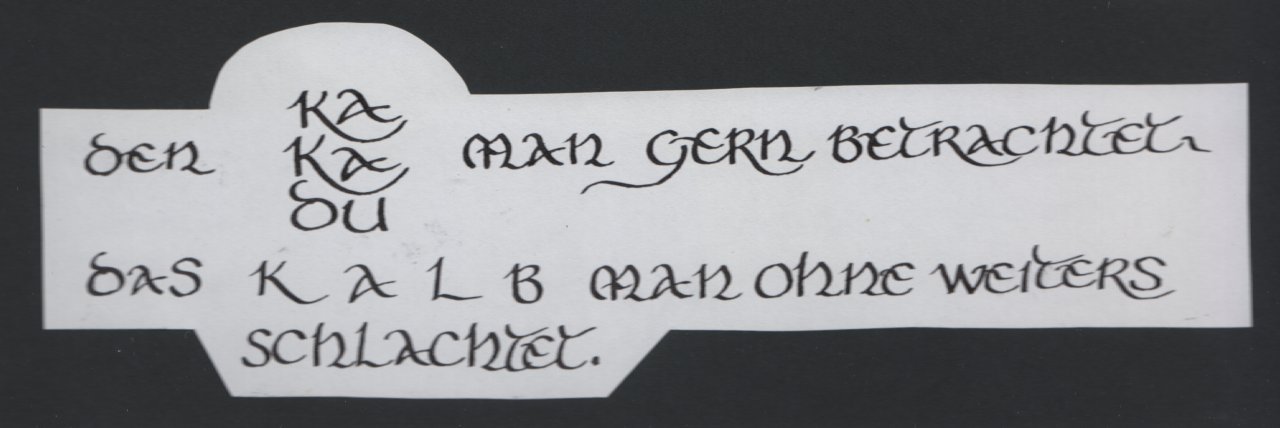 KA
DEN KA MAN GERN BETRACHTET
DU
DAS K A L B MAN OHNE WEITERS
SCHLACHTET.